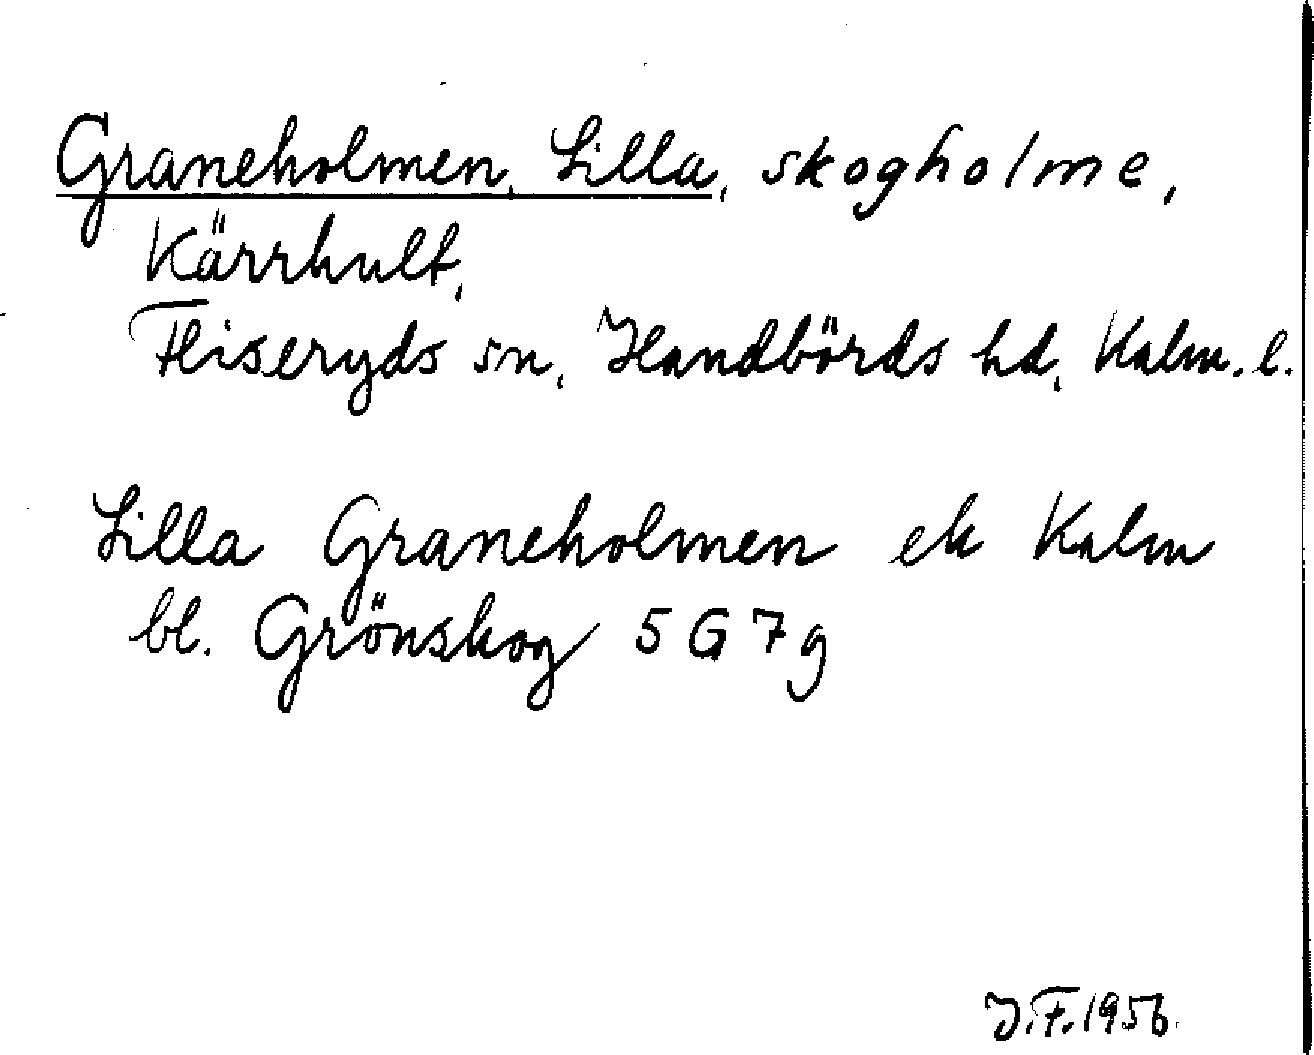 Graneholmen, Lilla, skogholme,
Kärrhult,
Fliseryds sn, Handbörds hd, Kalm. l.
Lilla Graneholmen ek Kalm
bl. Grönskog 5 G 7 g
J.F. 1956.